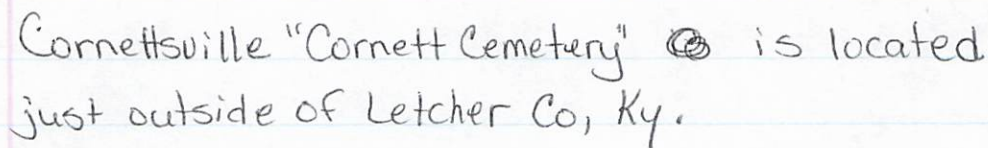 Cornettsville "Cornett Cemetery" is located
just outside of Letcher Co, Ky.